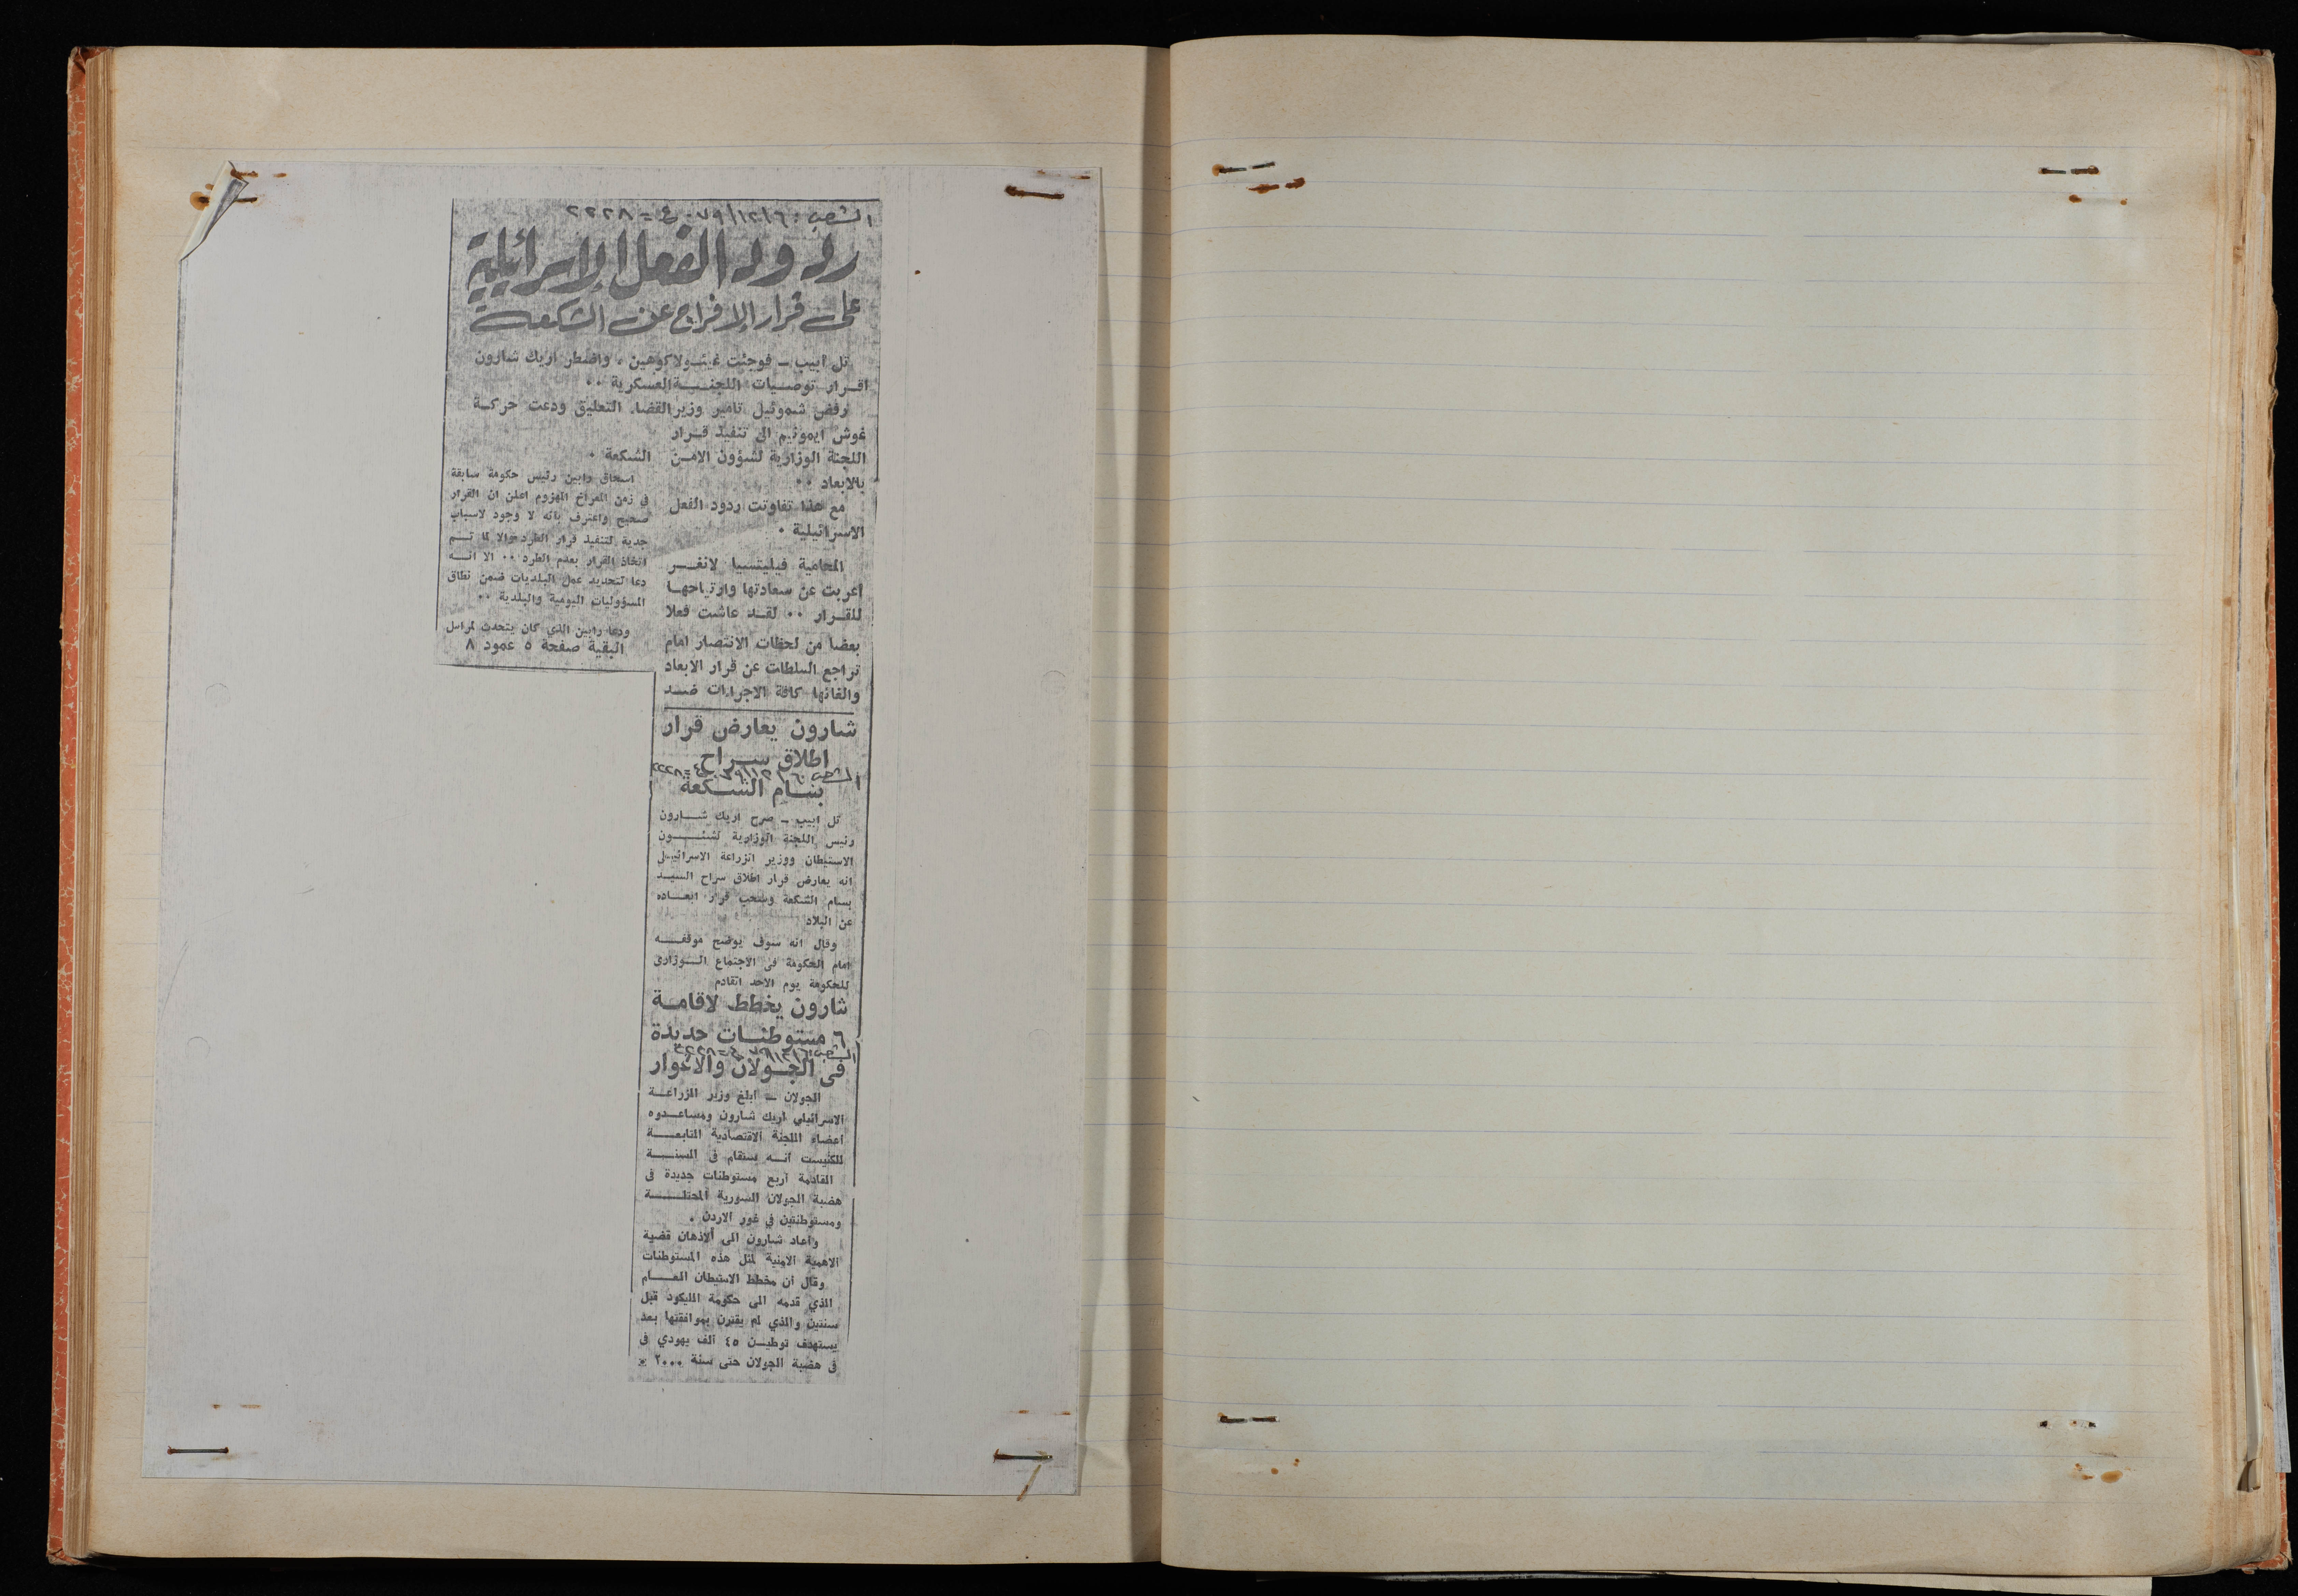 الشعب: ٧٩/١٢/٦ . ع = ٢٢٢٨
ردود الفعل الاسرائيلية
على قرار الافراج عن الشكعة
تل ابيب - فوجئت غيئولا كوهين ، واضطر اريك شارون
اقرار توصيات اللجنة العسكرية ..
رفض شموئيل تامير وزير القضاء التعليق ودعت حركة
غوش ايمونيم الى تنفيذ قرار
اللجنة الوزارية لشؤون الامن
بالابعاد ..
مع هذا تفاوتت ردود الفعل
الاسرائيلية .
المحامية فيليتسيا لانغر
اعربت عن سعادتها وارتياحها
للقرار .. لقد عاشت فعلا
بعضا من لحظات الانتصار امام
تراجع السلطات عن قرار الابعاد
والغائها كافة الاجراءات ضد
الشكعة .
اسحاق رابين رئيس حكومة سابقة
في زمن المعراخ المهزوم اعلن ان القرار
صحيح واعترف بانه لا وجود لاسباب
جدية لتنفيذ قرار الطرد والا لما تم
اتخاذ القرار بعدم الطرد .. الا انه
دعا لتحديد عمل البلديات ضمن نطاق
المسؤوليات اليومية والبلدية ..
ودعا رابين الذي كان يتحدث لمراسل
البقية صفحة ٥ عمود ٨
شارون يعارض قرار
اطلاق سراح
الشعب: ٧٩/١٢/٦ . ع = ٢٢٢٨
بسام الشكعة
تل ابيب - صرح اريك شارون
رئيس اللجنة الوزارية لشئون
الاستيطان ووزير الزراعة الاسرائيلي
انه يعارض قرار اطلاق سراح السيد
بسام الشكعة وسحب قرار ابعاده
عن البلاد
وقال انه سوف يوضح موقفه
امام الحكومة في الاجتماع الوزاري
للحكومة يوم الاحد القادم
شارون يخطط لاقامة
٦ مستوطنات جديدة
الشعب: ٧٩/١٢/٦ . ع = ٢٢٢٨
في الجولان والاغوار
الجولان - ابلغ وزير الزراعة
الاسرائيلي اريك شارون ومساعدوه
اعضاء اللجنة الاقتصادية التابعة
للكنيست انه ستقام في السنة
القادمة اربع مستوطنات جديدة في
هضبة الجولان السورية المحتلة
ومستوطنتين في غور الاردن .
واعاد شارون الى الاذهان قضية
الاهمية الامنية لمثل هذه المستوطنات
وقال ان مخطط الاستيطان العام
الذي قدمه الى حكومة الليكود قبل
سنتين والذي لم يقترن بموافقتها بعد
يستهدف توطين ٤٥ الف يهودي في
في هضبة الجولان حتى سنة ٢٠٠٠ *